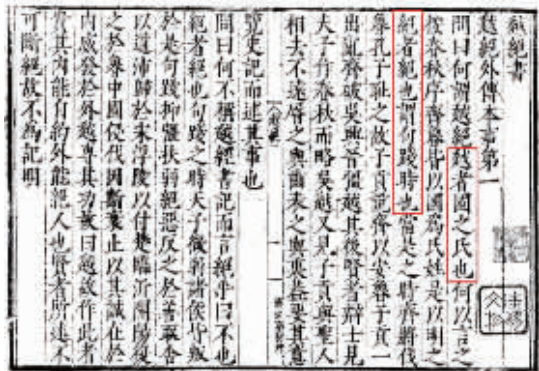 越絕書
越絕外傳本事第一
問曰何謂越絕越者國之氏也何以言之
按春秋序齊魯皆以國為氏姓是以明之
絕者絕也謂句踐時也當是之時齊將伐
魯孔子恥之故子貢說齊以安魯子貢一
出亂齊破吳興晉彊越其後賢者辯士見
夫子作春秋而略吳越又見子貢與聖人
相去不遠脣之與齒表之與裏蓋要其意
覽史記而述其事也
問曰何不稱越經書記而言絕乎曰不也
絕者絕也句踐之時天子微弱諸侯皆叛
於是句踐抑彊扶弱絕惡反之於善取舍
以道沛歸於宋浮陵以付楚臨沂開陽復
之於魯中國侵伐因斯衰止以其誠在於
內威發於外越專其功故曰越絕故作此者
貴其內能自約外能絕人也賢者所述不
可斷絕故不為記明